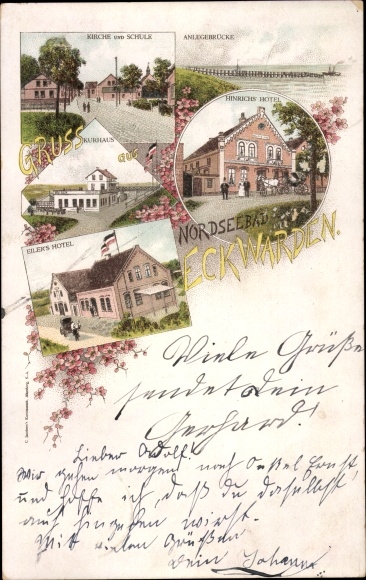 KIRCHE UND SCHULE
ANLEGEBRÜCKE
HINRICHS' HOTEL
GRUSS
aus
KURHAUS
NORDSEEBAD
ECKWARDEN.
EILER'S HOTEL
Viele Grüße
sendet Dein
Gerhard!
Lieber Adolf!
Wir gehen morgen nach Onkel Ernst,
und hoffe ich, daß du daselbst
auch hingehen wirst.
Mit vielen Grüßen
Dein Johann